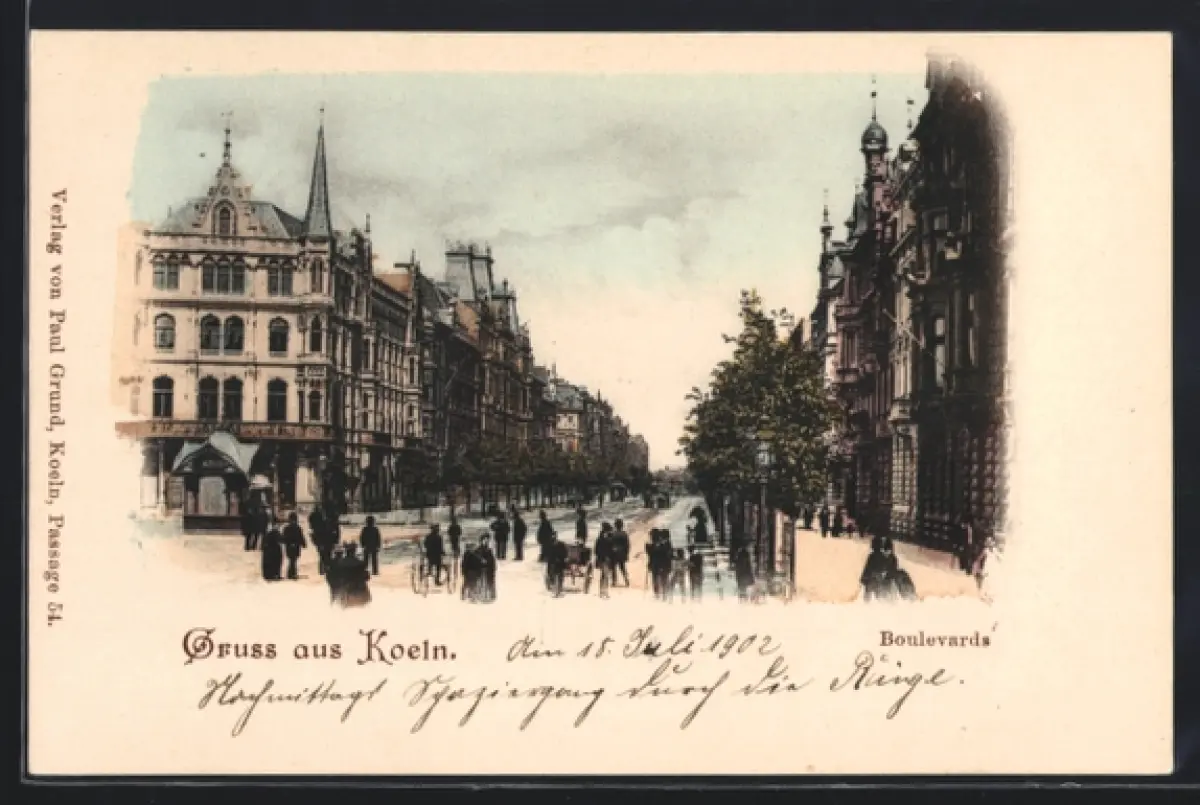 Verlag von Paul Grund, Koeln, Passage 54.
Gruss aus Koeln. Am 18. Juli 1902 Boulevards
Nachmittags Spaziergang durch die Ringe.